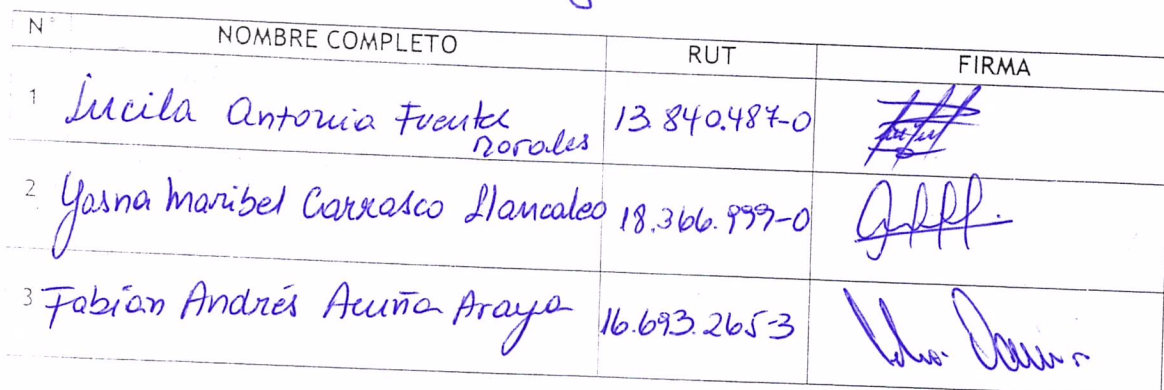 N° NOMBRE COMPLETO RUT FIRMA
1 Lucila Antonia Fuentes 13.840.487-0
Morales
2 Yasna Maribel Carrasco Llancaleo 18.366.999-0
3 Fabian Andrés Acuña Araya 16.693.265-3